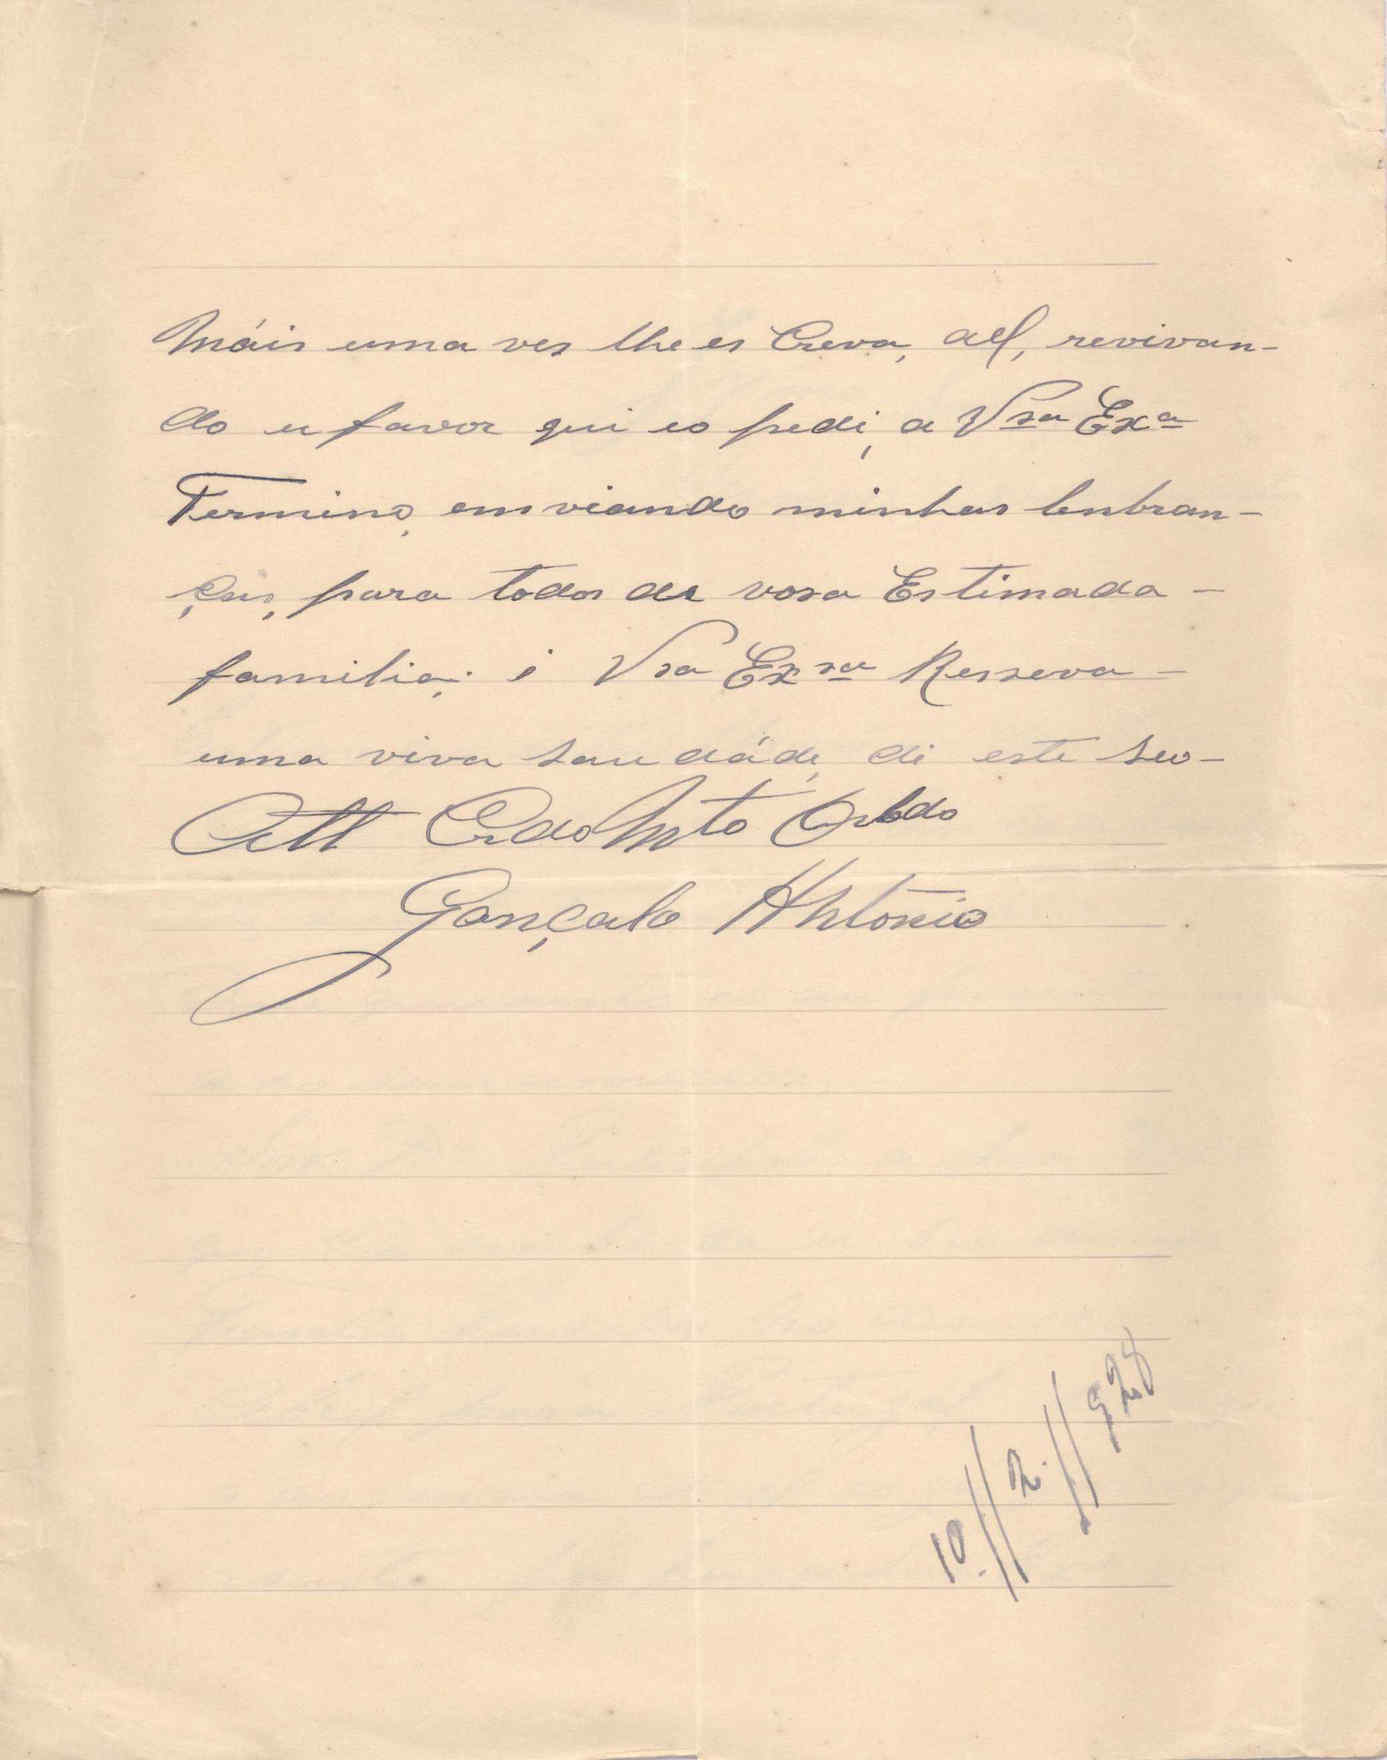 Máis uma ves lhe es Creva, all, revivan-
do u favor qui eo pedi, a Vsa Exa
Termino, emviando minhas lenbran-
ças, para todos da vosa Estimada -
familia; i Vsa Exsa Resseva -
uma viva saudáde, di este seu -
Att Crdo Mto Obdo
Gonçalo António
10//2//928